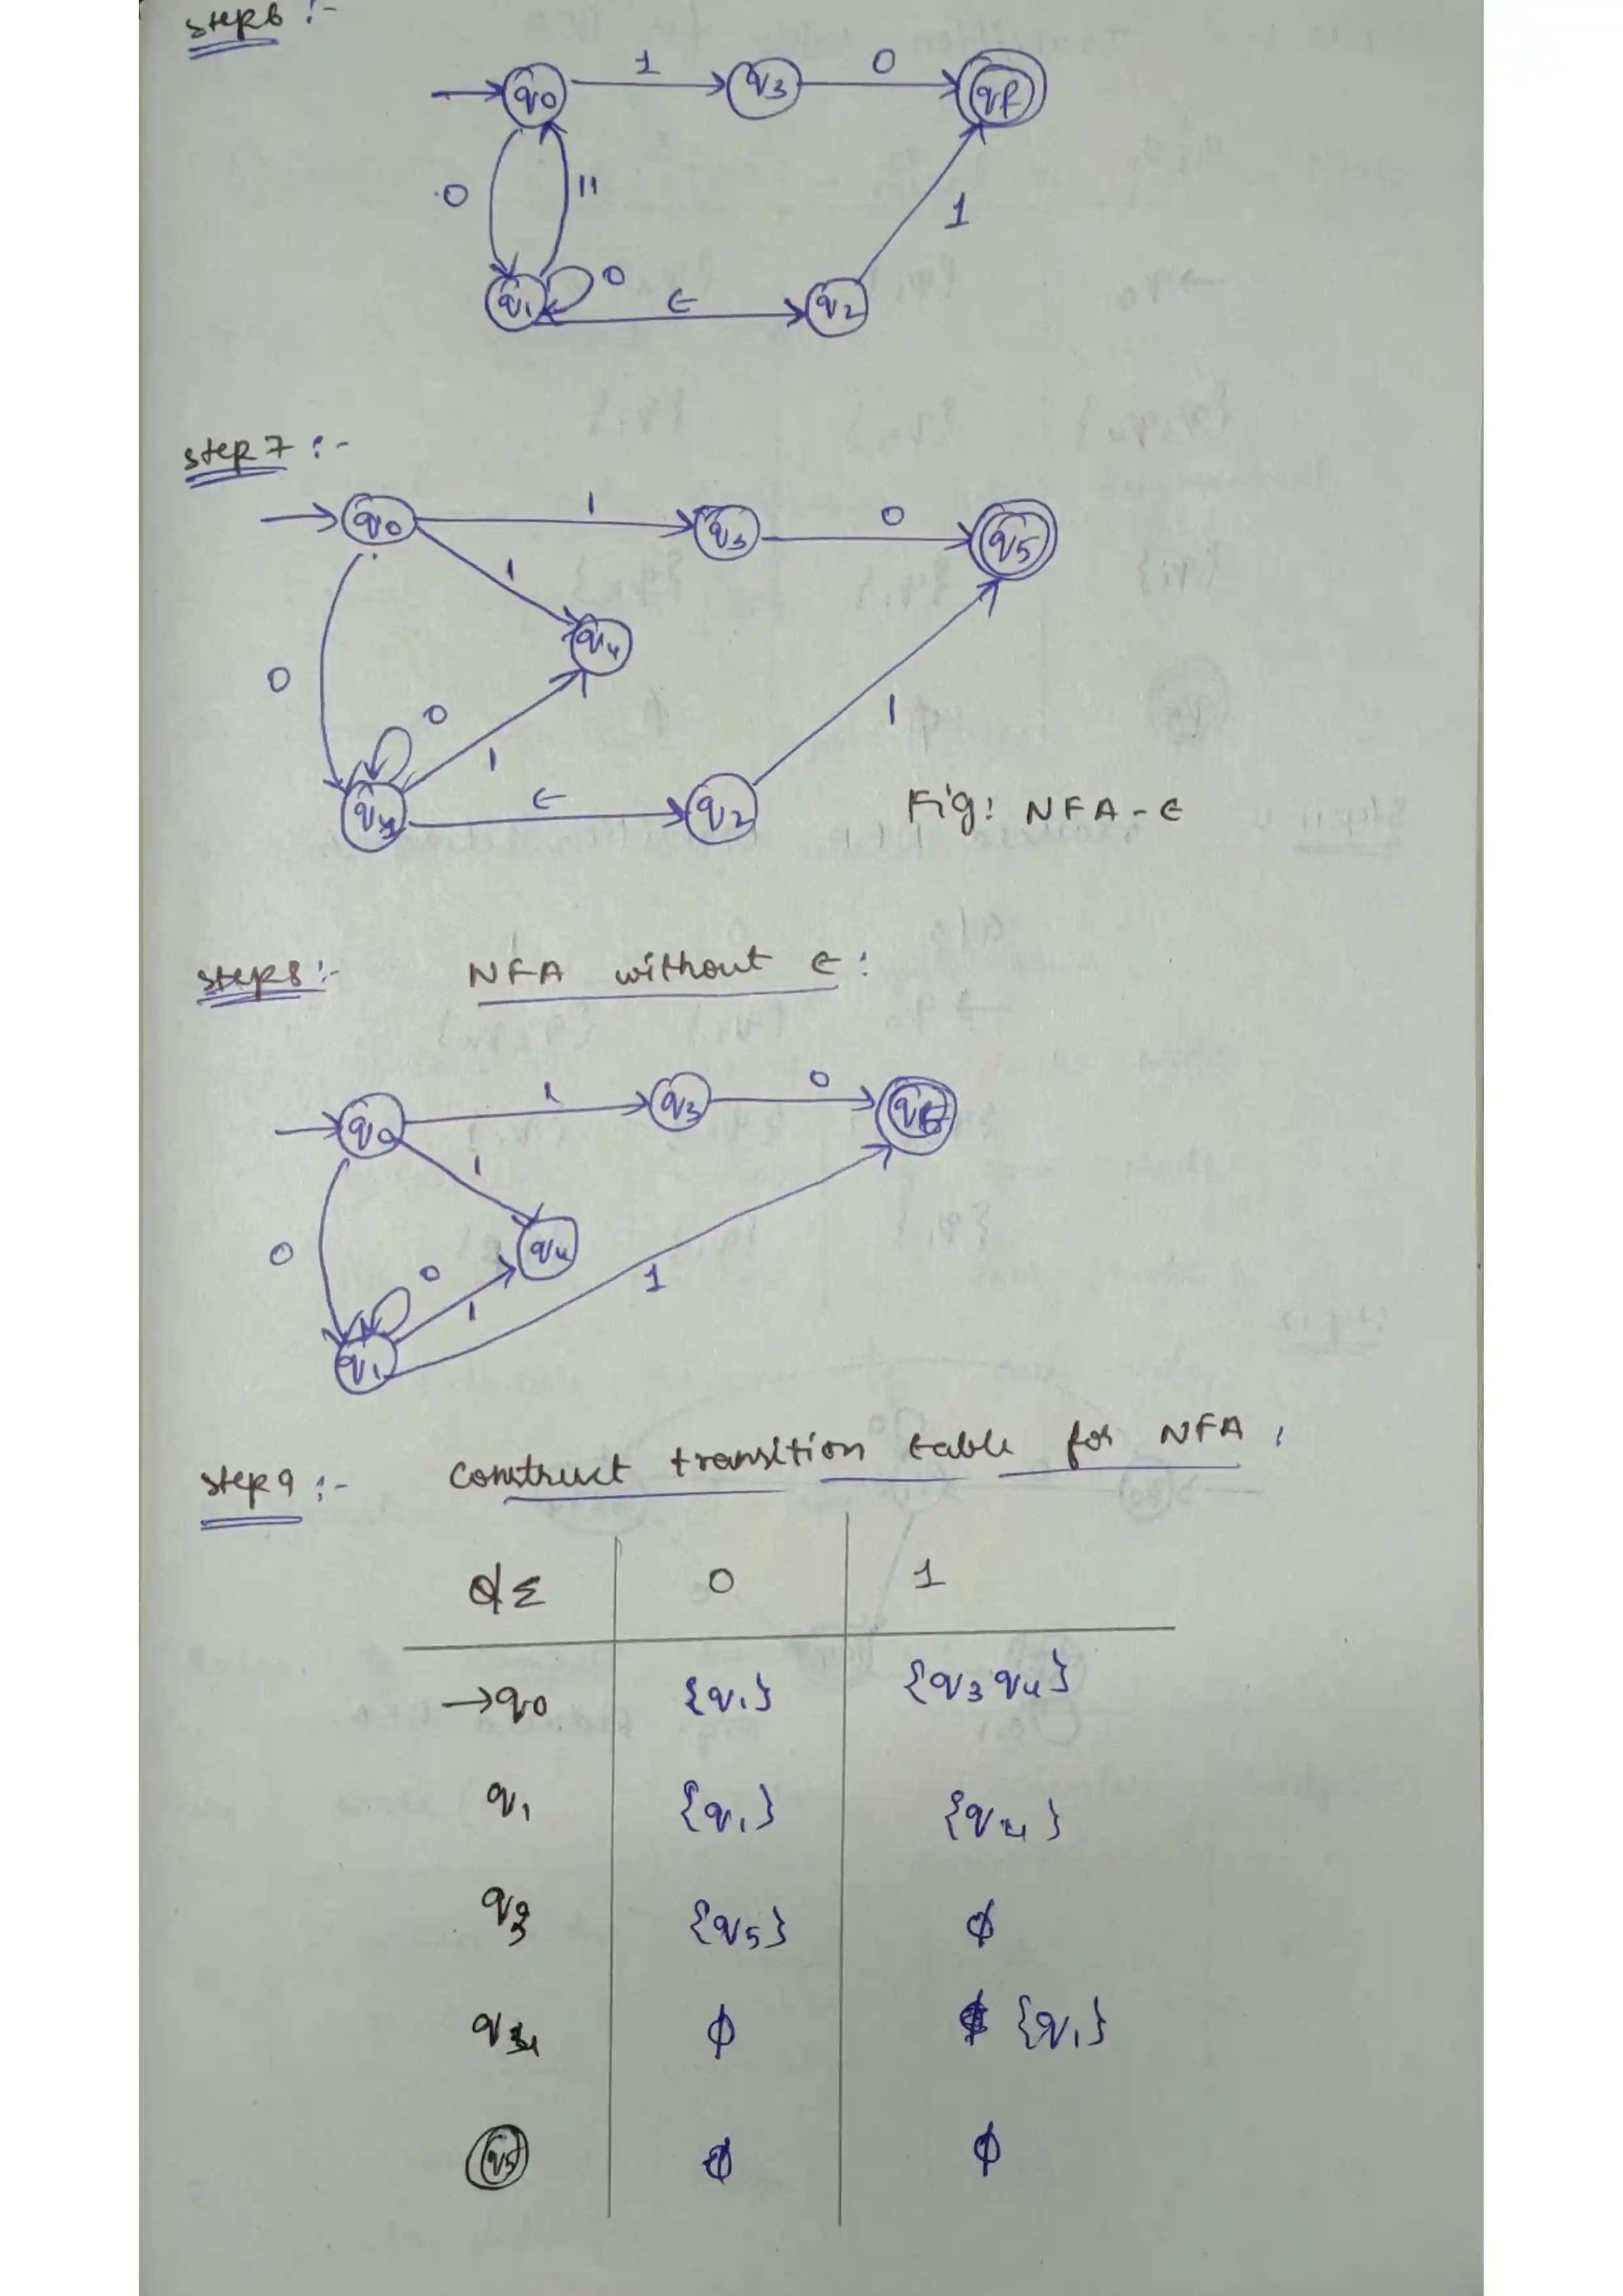 step 6 :-
q0 1 q3 0 qf
0 11 1
q1 0 ϵ q2
step 7 :-
q0 1 q3 0 q5
1
q4
0 0 1 1
q1 ϵ q2
Fig: NFA - ϵ
step 8 :- NFA without ϵ :
q0 1 q3 0
1
q4
0 0 1 1
q1
step 9 :- construct transition table for NFA :
Q/Σ 0 1
→q0 {q1} {q3 q4}
q1 {q1} {q4}
q3 {q5} ϕ
q4 ϕ {q1}
q5 ϕ ϕ